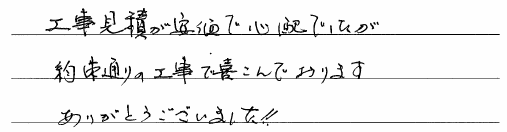 工事見積が安価で心配でしたが
約束通りの工事で喜こんでおります
ありがとうございました!!